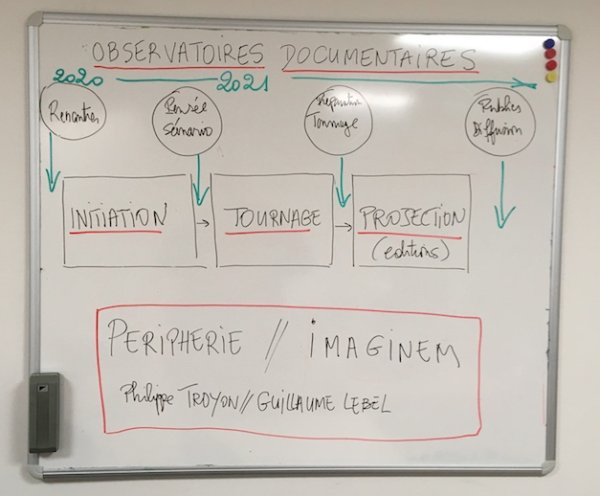 OBSERVATOIRES DOCUMENTAIRES
2020 2021
Rencontres
Pensée
Scénario
Tournage
Diffusion
INITIATION → TOURNAGE → PROJECTION
(editions)
PERIPHERIE // iMAGINEM
Philippe TROYON // GUILLAUME LEBEL